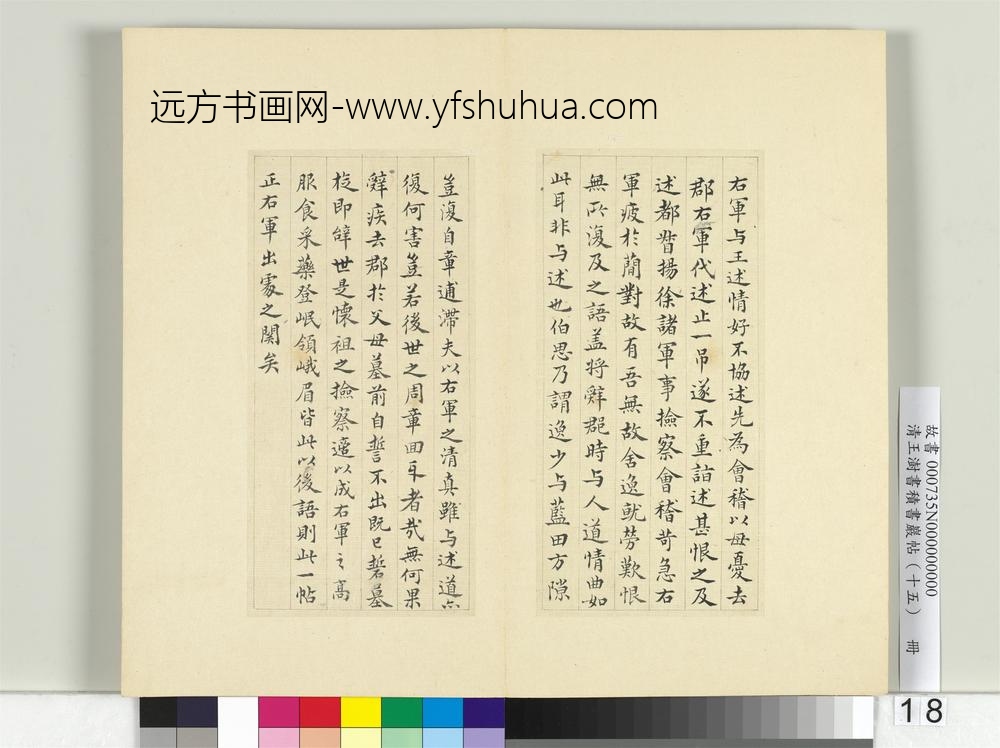 远方书画网-www.yfshuhua.com
右軍与王述情好不協述先為會稽以母憂去
郡右軍代述止一吊遂不重詣述甚恨之及
述都督揚徐諸軍事撿察會稽苛急右
軍疲於蕳對故有吾無故舍逸就勞歎恨
無所復及之語盖將辤郡時与人道情曲如
此耳非与述也伯思乃謂逸少与藍田方隙
豈復自章逋滯夫以右軍之清真雖与述道
復何害豈若後世之周章回者哉無何果
辤疾去郡於父母墓前自誓不出既已誓墓
旋即辤世是懷祖之撿察適以成右軍之高
服食采藥登岷領峨眉皆此以後語則此一帖
正右軍出處之関矣
故書 000735N000000000
清王澍書積書巖帖（十五） 冊
18